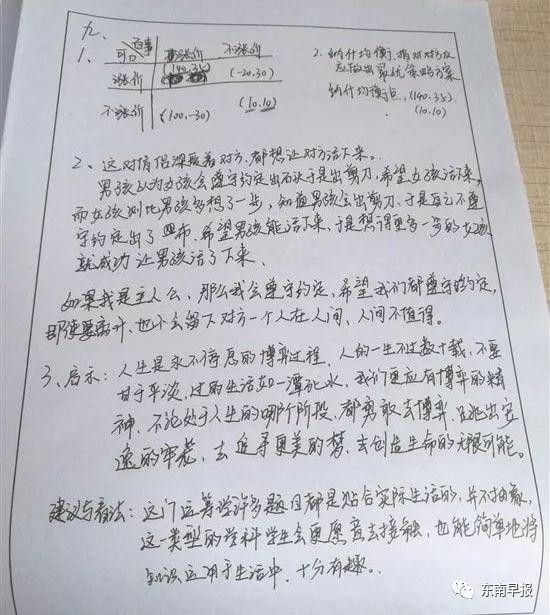 九、
1、 可口 百事 涨价 不涨价
涨价 (140,35) (-20,30)
不涨价 (100,-30) (10,10)
2、纳什均衡:指对对方反
应做出最优策略方案
纳什均衡点:(140,35)
(10,10)
2、这对情侣深爱着对方,都想让对方活下来。
男孩认为女孩会遵守约定出石头于是出剪刀,希望女孩活下来,
而女孩则比男孩多想了一步,知道男孩会出剪刀,于是自己不遵
守约定出了布,希望男孩能活下来,于是想得更多一步的女孩
就成功让男孩活了下来、
如果我是主人公,那么我会遵守约定,希望我们都遵守约定,
即使要离开,也不会留下对方一个人在人间、人间不值得。
3、启示:人生是永不停息的博弈过程,人的一生不过数十载,不要
甘于平淡,过的生活如一潭死水,我们更应有博弈的精
神、不论处于人生的哪个阶段,都勇敢去博弈、且逃出安
逸的牢笼、去追寻更美的梦、去创造生命的无限可能。
建议与看法:这门运筹学许多题目都是贴合实际生活的,并不枯燥,
这一类型的学科学生会更愿意去接触,也能简单地将
知识运用于生活中,十分有趣。
东南早报